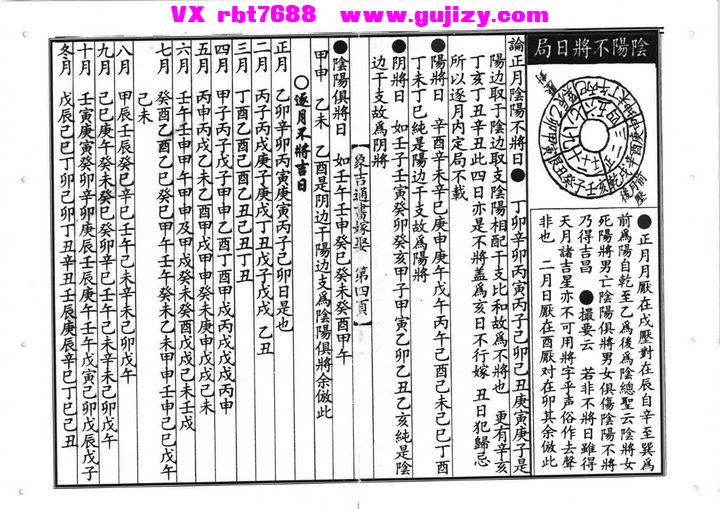 VX rbt7688 www.gujizy.com
陰陽不將日局
●正月月厭在戌壓對在辰自辛至巽為
前為陽自乾至乙為後為陰總聖云陰將女
死陽將男亡陰陽俱將男女俱傷陰陽不將
乃得吉昌 ●撮要云 若非不將日雖得
天月諸吉星亦不可用將字平声俗作去聲
非也 二月日厭在酉厭对在卯其余倣此
論正月陰陽不將日● 丁卯辛卯丙寅丙子己卯己丑庚寅庚子是
陽边取于陰边取支陰陽相配干支比和故為不將也 更有辛亥
丁亥丁丑辛丑此四日亦是不將盖為亥日不行嫁 丑日犯歸忌
所以逐月内定局不載
●陽將日 辛酉辛未辛巳庚申庚午戊午丙午己酉己未己巳丁酉
丁未丁巳純是陽边干支故爲陽將
●阴將日 如壬子壬寅癸卯癸亥甲子甲寅乙卯乙丑乙亥純是陰
边干支故為阴將
【象吉通書嫁娶 第四頁】
●陰陽俱將日 如壬午壬申癸巳癸未癸酉甲午
甲申 乙未 乙酉是阴边干陽边支爲陰陽俱將余倣此
○逐月不將吉日
正月 乙卯辛卯丙寅庚寅丙子己卯日是也
二月 丙子丙戌庚子庚戌丁丑戊子戊戌 乙丑
三月 丁酉乙酉己酉乙丑己丑丁丑
四月 甲子丙子戊子甲申乙酉丁酉甲戌丙戌戊戌丙申
五月 丙申丙戌乙未乙酉甲戌甲申癸未庚申戊戌己未
六月 壬午壬申甲申及甲戌癸未癸酉戊戌己未壬戌
七月 癸酉戊午乙酉癸巳甲午壬午癸未乙未甲申壬申乙巳戊午
己未
八月 甲辰壬辰癸巳辛巳壬午己未辛未己卯戊午
九月 己巳庚午癸未癸巳癸卯辛巳壬午己未辛未己卯戊午
十月 壬寅庚寅癸卯辛卯庚辰壬辰庚午壬午戊寅己卯戊辰戊子
冬月 戊辰己巳丁卯己卯丁丑辛丑壬辰庚辰辛巳丁巳己丑